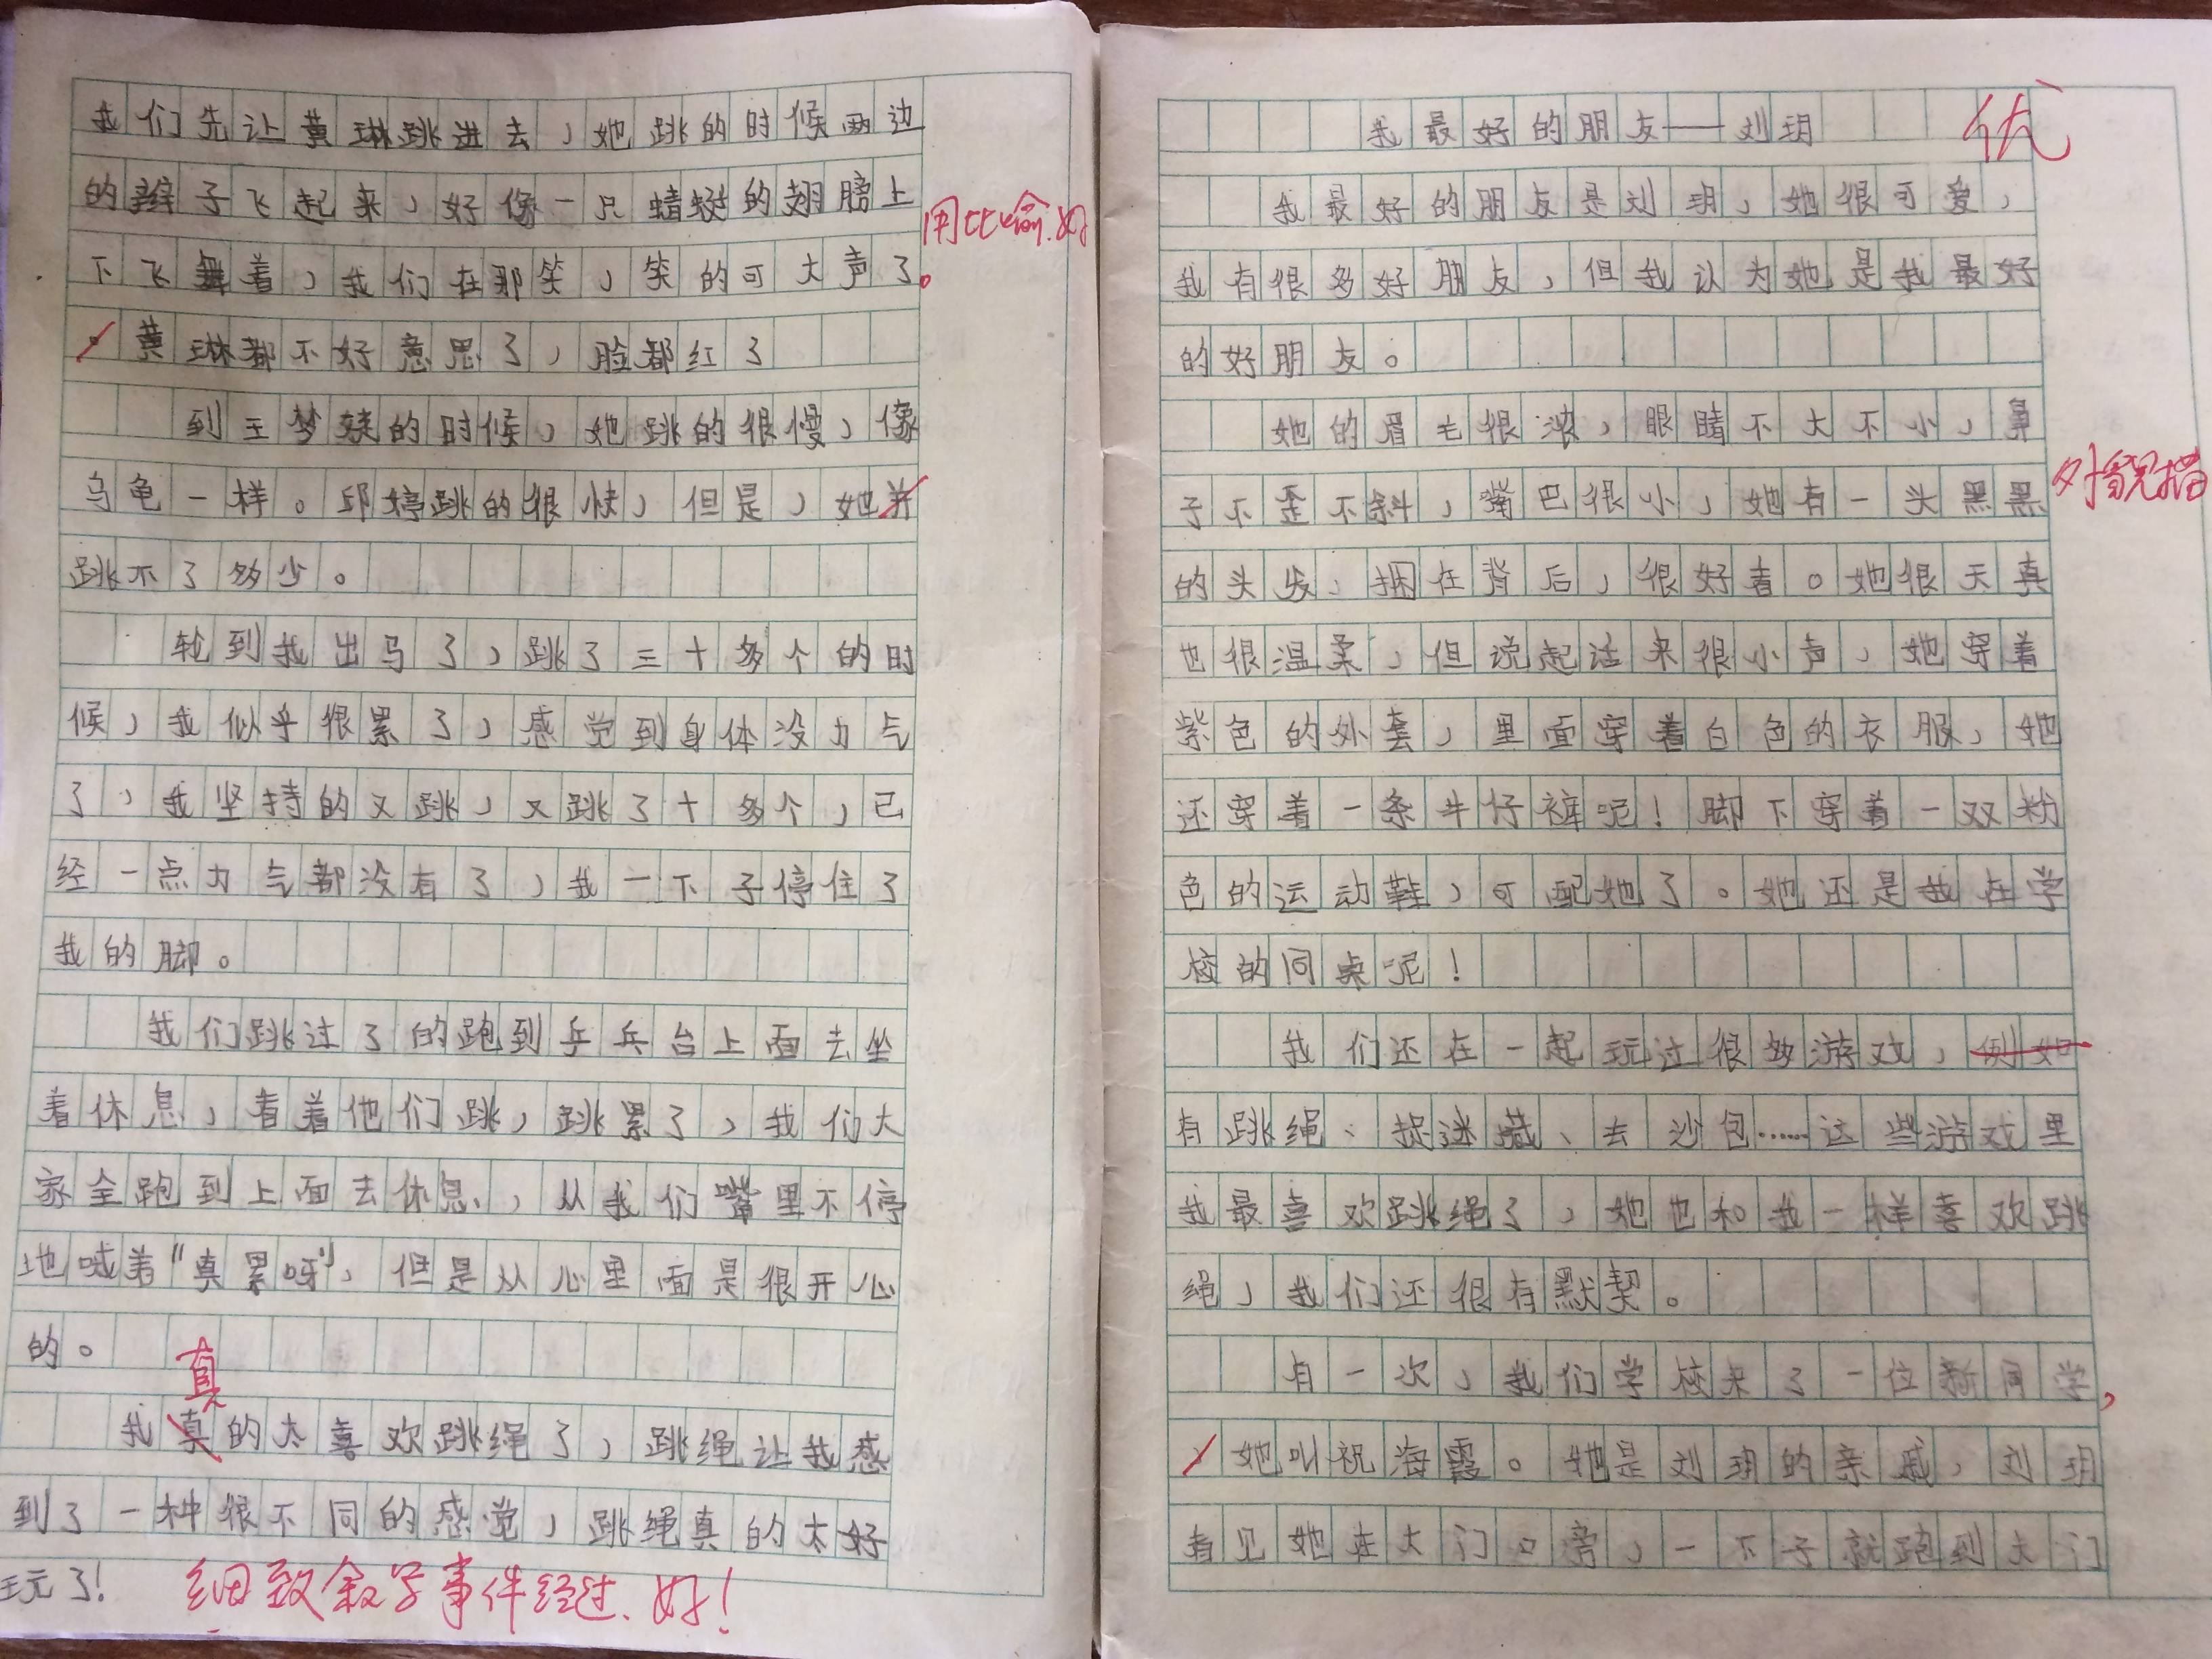 我们先让黄琳跳进去，她跳的时候两边
的辫子飞起来，好像一只蜻蜓的翅膀上
用比喻.好
下飞舞着，我们在那笑，笑的可大声了。
。黄琳都不好意思了，脸都红了
到王梦婕的时候，她跳的很慢，像
乌龟一样。邱婷跳的很快，但是，她并
跳不了多少。
轮到我出马了，跳了三十多个的时
候，我似乎很累了，感觉到身体没力气
了，我坚持的又跳，又跳了十多个，已
经一点力气都没有了，我一下子停住了
我的脚。
我们跳过了的跑到乒乓台上面去坐
着休息，看着他们跳，跳累了，我们大
家全跑到上面去休息，从我们嘴里不停
地喊着“真累呀”，但是从心里面是很开心
的。
真
我真的太喜欢跳绳了，跳绳让我感
到了一种很不同的感觉，跳绳真的太好
玩了！
细致叙写事件经过.好！
我最好的朋友——刘玥
优
我最好的朋友是刘玥，她很可爱，
我有很多好朋友，但我认为她是我最好
的好朋友。
她的眉毛很浓，眼睛不大不小，鼻
子不歪不斜，嘴巴很小，她有一头黑黑
外貌描
的头发，捆在背后，很好看。她很天真
也很温柔，但说起话来很小声，她穿着
紫色的外套，里面穿着白色的衣服，她
还穿着一条牛仔裤呢！脚下穿着一双粉
色的运动鞋，可配她了。她还是我在学
校的同桌呢！
我们还在一起玩过很多游戏，例如
有跳绳、捉迷藏、去沙包……这些游戏里
我最喜欢跳绳了，她也和我一样喜欢跳
绳，我们还很有默契。
有一次，我们学校来了一位新同学，
，她叫祝海霞。她是刘玥的亲戚，刘玥
看见她在大门口旁，一下子就跑到大门